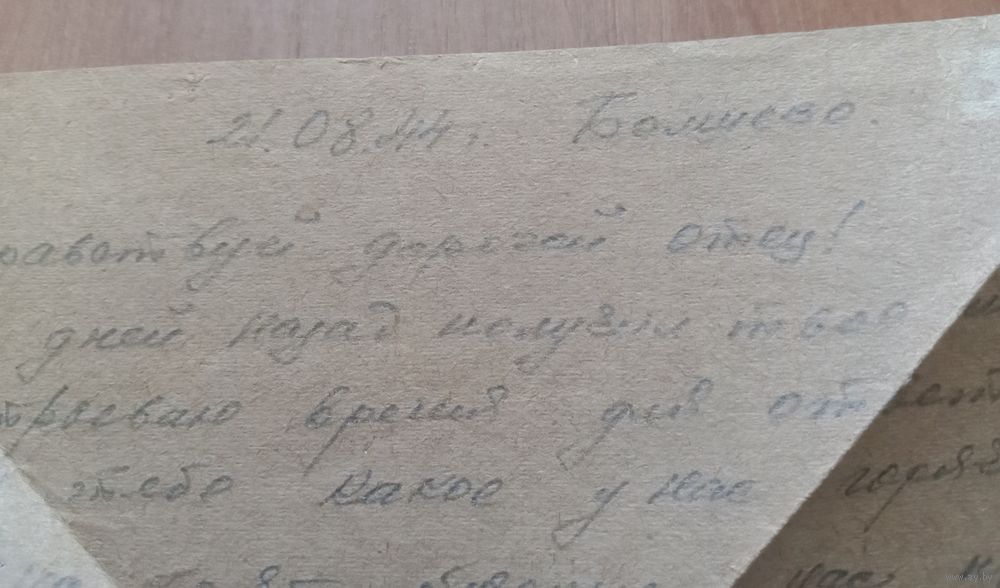 21.08.44г. Болшево.
равствуй дорогой отец!
дней назад получил твое
трываю время для ответ
тебе какое у нас горяч
www.ay.by